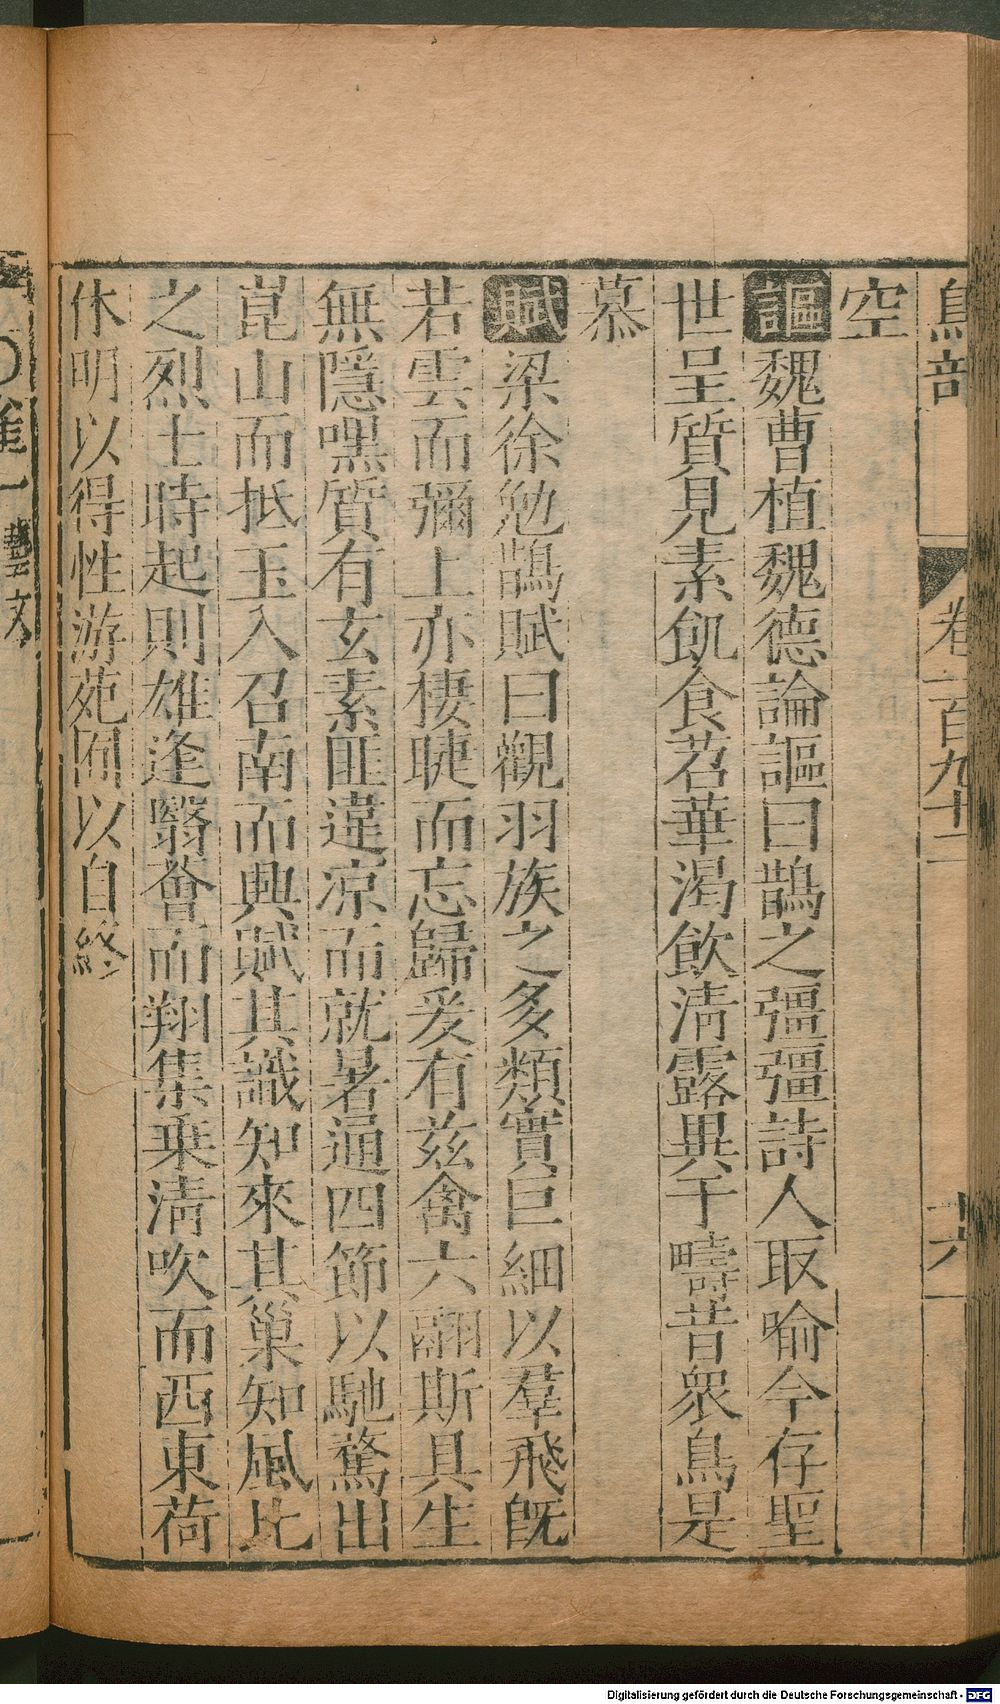 鳥部 卷一百九十二 十六
空
謳魏曹植魏德論謳曰鵲之彊彊詩人取喻今存聖
世呈質見素飢食苕華渴飲淸露異于疇昔衆鳥是
慕
賦梁徐勉鵲賦曰觀羽族之多類實巨細以羣飛旣
若雲而彌上亦棲睫而忘歸爰有兹禽六翮斯具生
無隱嘿質有玄素匪違凉而就暑逼四節以馳騖出
崑山而抵玉入召南而興賦其識知來其巢知風比
之烈士時起則雄逢翳薈而翔集乘淸吹而西東荷
休明以得性游苑囿以自終
藝文
Digitalisierung gefördert durch die Deutsche Forschungsgemeinschaft - DFG